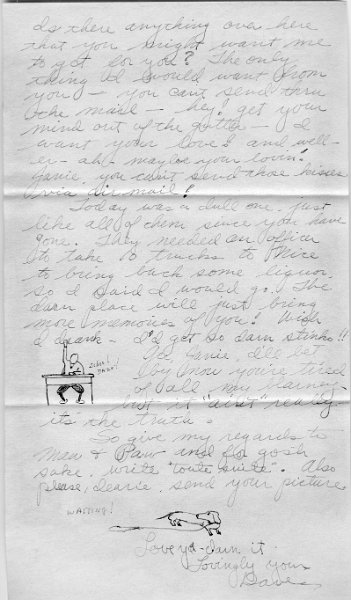 Is there anything over here
that you might want me
to get for you? The only
thing I would want from
you — you can't send thru
the mail — hey! get your
mind out of the gutter — I
want your love! and well-
er- ah- maybe your lovin!
Janie, you can't send those kisses
via air mail!
Today was a dull one, just
like all of them since you have
gone. They needed an officer
to take 10 trucks to Nice
to bring back some liquor.
so I said I would go. The
darn place will just bring
more memories of you! Wish
I drank - I'd get so darn stinko!!
Gee Janie, I'll bet
by now you're tired
of all my blarney-
but it "ain't" really-
its the truth.
So give my regards to
Maw & Paw and for gosh
sake, write "toute suite". Also
please, dearie, send your picture
WAITING!
Love ya- darn it
Lovingly yours
Dave